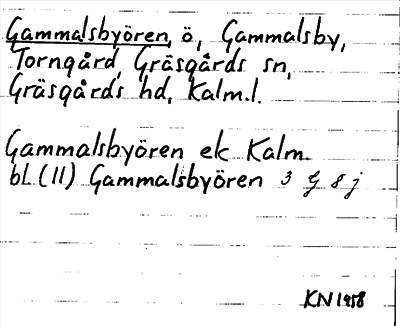 Gammalsbyören, ö, Gammalsby,
Torngård, Gräsgårds sn,
Gräsgårds hd, Kalm.l.
Gammalsbyören ek Kalm.
bl. (11) Gammalsbyören 3 G 8 j
KN 1958